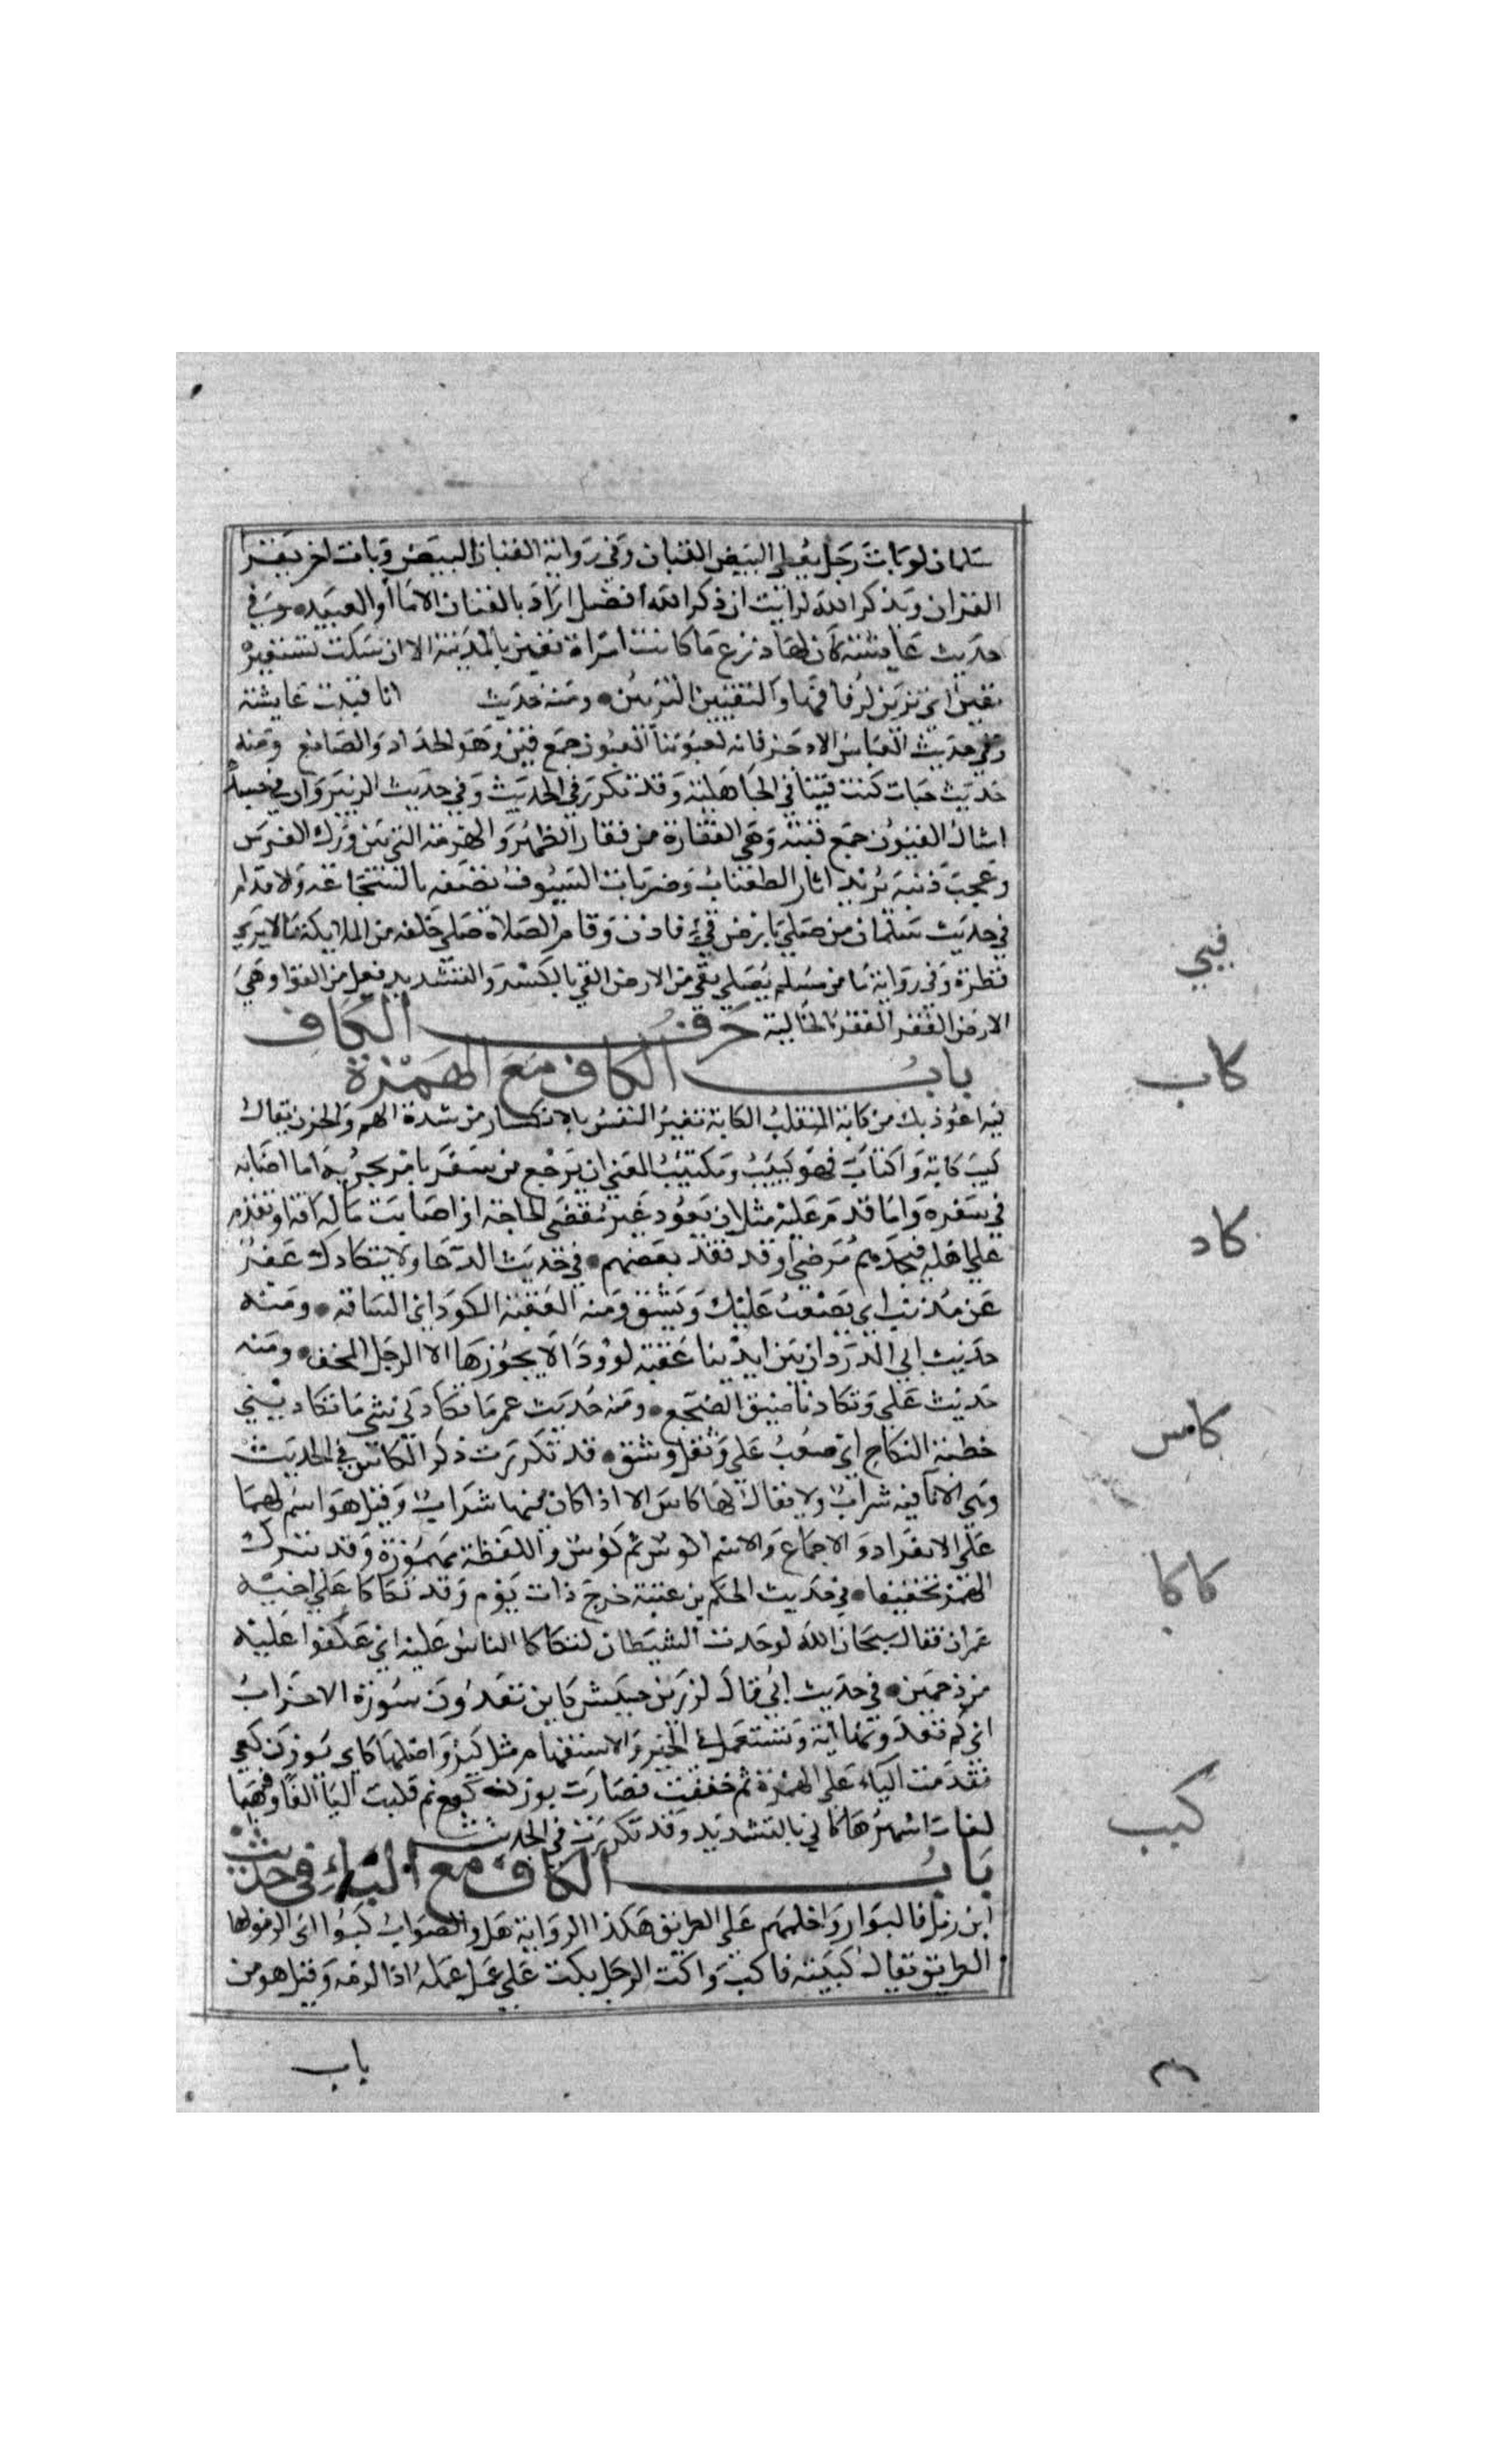 سلمان لو بات رجل يعطي البيض القيان وفي رواية القيان البيض وبات اخر يقرا
القران ويذكر الله لرايت ان ذكر الله افضل اراد بالقينات الاما او العبيد وفي
حديث عايشة كان لها درع ما كانت امراة تقين بالمدينة الا ارسلت تستعيره
تقين اي تزين لزفافها والتقيين التزيين ومنه حديث انا قينت عايشة
وفي حديث العباس الا الاذخر فانه لقيوننا القيون جمع قين وهو الحداد والصانع ومنه
حديث خباب كنت قينا في الجاهلية وقد تكرر في الحديث وفي حديث الزبير وان في جسده
امثال القيون جمع قينة وهي الفقارة من فقار الظهر والهزمة التي بين ورك الفرس
وعجب ذنبه يريد اثار الطعنات وضربات السيوف نصفه بالشجاعة والاقدام
في حديث سلمان من صلي بارض قي فاذن وقام الصلاة صلي خلفه من الملايكة ما لا يري
قطره وفي رواية ما من مسلم يصلي بقي من الارض القي بالكسر والتشديد فعل من القوا وهي
الارض القفر القفر الخالية حرف الكاف
باب الكاف مع الهمزة
فيه اعوذ بك من كابة المنقلب الكابة تغير النفس بالانكسار من شدة الهم والحزن يقال
كيب كابة واكتاب فهو كييب ومكتيب المعني ان يرجع من سفره بامر يحزنه اما اصابه
في سفره واما قدم عليه مثل ان يعود غير مقضي الحاجة او اصابت ماله افة او يقدم
علي اهله فيجدهم مرضي او قد فقد بعضهم في حديث الدعا ولا يتكادك عفو
عن مذنب اي يصعب عليك ويشق ومنه العقبة الكودا اي الشاقة ومنه
حديث ابي الدردا ان بين ايدينا عقبة كوودا لا يجوزها الا الرجل المخف ومنه
حديث علي وتكادنا ضيق المضجع ومنه حديث عمر ما تكادني شي ما تكادني
خطبة النكاح اي صعب علي وثقل وشق قد تكررت ذكر الكاس في الحديث
وهي الانا فيه شراب ولا يقال لها كاس الا اذا كان فيها شراب وقيل هو اسم لهما
علي الانفراد والاجماع والاسم اكوس ثم كووس واللفظة مهموزة وقد تترك
الهمز تخفيفا في حديث الحكم بن عتيبة خرج ذات يوم وقد تكاكا علي اخيه
عمران فقال سبحان الله لو حدث الشيطان لتكاكا الناس عليه اي عكفوا عليه
مزدحمين في حديث ابي قال لزر بن حبيش كاين تعدون سورة الاحزاب
اي كم تعدونها اية وتستعمل في الخبر والاستفهام مثل كم واصلها كاي بوزن كعي
فقدمت الياء علي الهمزة ثم خففت فصارت بوزن كيع ثم قلبت اليا الفا وفيها
لغات اشهرها كاي بالتشديد وقد تكررت في الحديث
باب الكاف مع الباء في حديث
ابن زمل فاكبوا رواحلهم علي الطريق هكذا الرواية قيل والصواب كبوا اي الزموها
الطريق يقال كببته فاكب واكب الرجل يكب علي عمل عمله اذا لزمه وقيل هو من
باب
قيي
كاب
كاد
كاس
كاكا
كبب